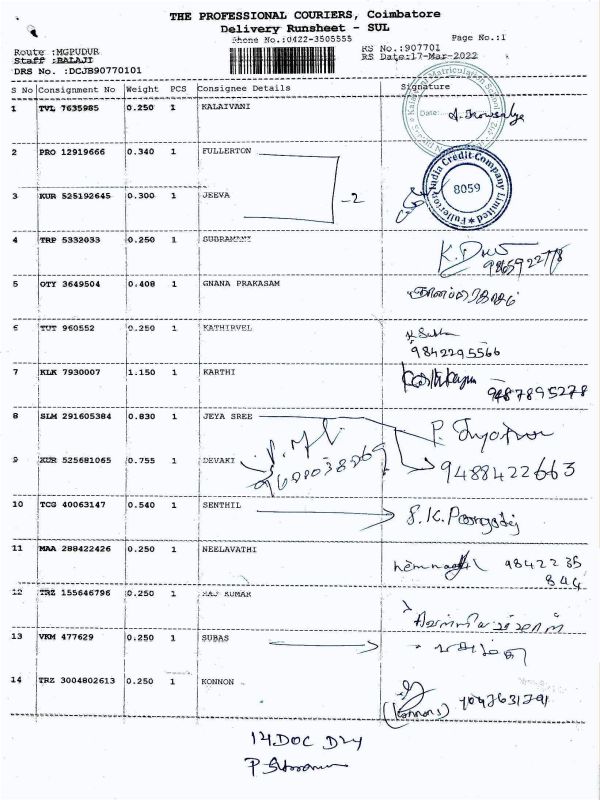 THE PROFESSIONAL COURIERS, Coimbatore
Delivery Runsheet - SUL
Phone No.:0422-3505555
Page No.:1
Route :MGPUDUR
Staff :BALAJI
DRS No. :DCJB90770101
RS No.:907701
RS Date:17-Mar-2022
S No Consignment No Weight PCS Consignee Details Signature
1 TVL 7635985 0.250 1 KALAIVANI
Date:
2 PRO 12919666 0.340 1 FULLERTON
Fullerton India Credit Company Limited
8059
3 KUR 525192645 0.300 1 JEEVA -2
4 TRP 5332033 0.250 1 SUBRAMANI
9865922778
5 OTY 3649504 0.408 1 GNANA PRAKASAM
6 TUT 960552 0.250 1 KATHIRVEL
9842295566
7 KLK 7930007 1.150 1 KARTHI
9487895278
8 SLM 291605384 0.830 1 JEYA SREE
9 KUR 525681065 0.755 1 DEVAKI
9488422663
10 TCG 40063147 0.540 1 SENTHIL
11 MAA 288422426 0.250 1 NEELAVATHI
9842235
844
12 TRZ 155646796 0.250 1 RAJ KUMAR
13 VKM 477629 0.250 1 SUBAS
14 TRZ 3004802613 0.250 1 KONNON
14 DOC Dly